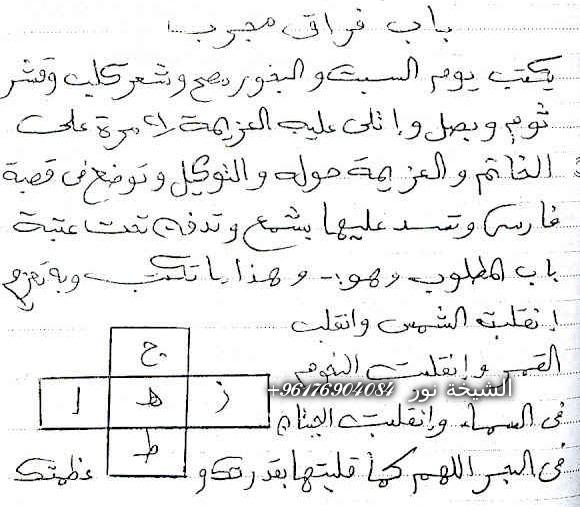 باب فراق مجرب
يكتب يوم السبت والبخور وشعر كلب وقشر
ثوم وبصل واتلى عليه العزيمة مرة على
الخاتم والعزيمة حوله والتوكيل وتوضع فى قصبة
فارسى وتسد عليها بشمع وتدفن تحت عتبة
باب المطلوب وهو وهذا ما تكتب وبه تعزم
إنقلبت الشمس وانقلب
ج
القمر وإنقلبت النجوم
الشيخة نور 96176904084+
ا ه ز
فى السماء وانقلبت
ط
فى البحر اللهم كما قلبتها بقدرتك و عظمتك